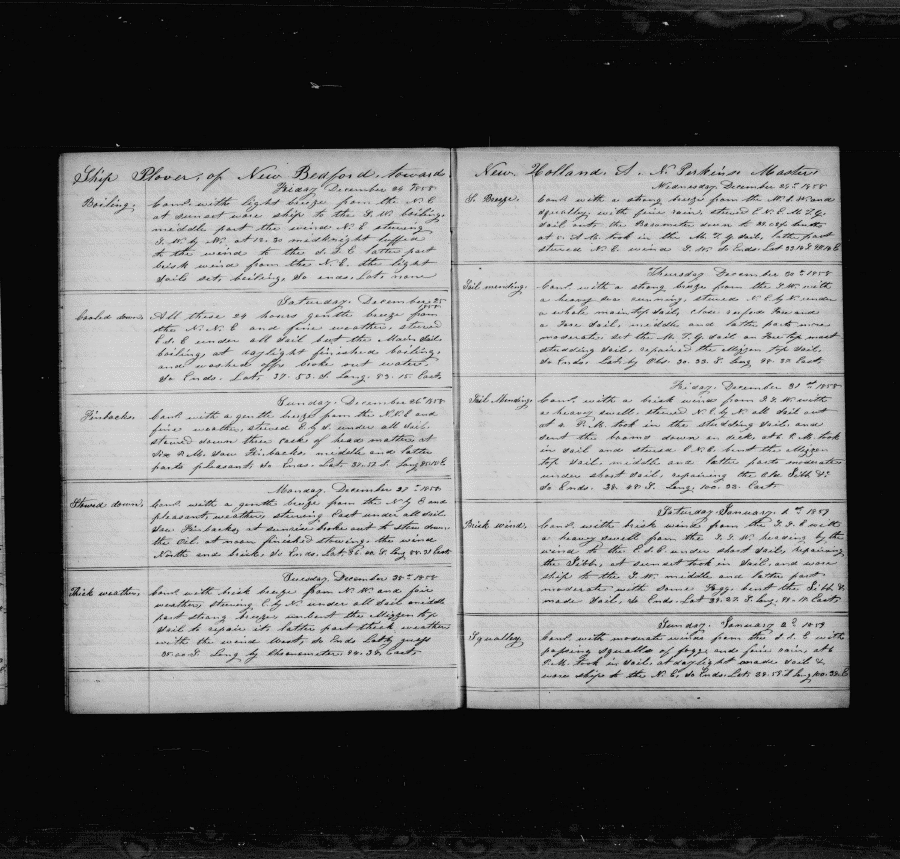 Ship Plover, of New Bedford, towards
Friday December 24th 1858
Boiling.
Comd. with light breeze from the N.E
at sunset wore ship to the S.W. boiling,
middle part the wind N.E steering
S.W. by W. at 12.30 midknight luffed
to the wind to the S.S.E latter part
brisk wind from the N.E. the light
sails set, boiling, So ends, Lat, none
Saturday. December 25 1858
Cooled down.
All these 24 hours gentle breeze from
the N.N.E and fine weather, stered
E.S.E under all sail but the Main sail
boiling, at daylight finished boiling,
and washed off broke out water,
So Ends. Lat, 37.53. S. Long. 83.15 East,
Sunday. December 26th 1858
Finbacks.
Comd. with a gentle breeze from the N.N.E and
fine weather, stered E. by S. under all sail.
stowed down three casks of head matter, at
Six P.M. saw Finbacks, middle and latter
parts pleasant, So Ends. Lat Long
Monday. December 27th 1858
Stowed down.
Comd. with a gentle breeze from the N by E and
pleasant, weather, steering East under all sail
saw Finbacks, at sunrise broke out to stow down
the Oil, at noon finished stowing, the wind
North and brisk, So Ends. Lat S. Long East
Tuesday. December 28th 1858
Thick weather,
Comd. with brisk breeze from N.W. and fair
weather, steering E. by N. under all sail middle
part strong breeze, unbent the Mizzen top
sail to repair it, latter part thick weather
with the wind West, So Ends Lat by guess
S. Long by Chronometer East,
New. Holland. A. N. Perkins. Master
Wednesday. December 29th 1858
S. Breeze.
Comd. with a strong breeze from the W.S.W. and
squally, with fine rain, stered E.N.E. M.T.G.
sail set, the Barometer down to
at A.M. took in the M.T.G. sail, latter part
stered N.E. wind S.W. So Ends. Lat
Thursday December 30th 1858
Sail mending.
Comd. with a strong breeze from the S.W. with
a heavy sea running, stered N.E. by N. under
a whole main top sail, close reefed Fore and
a Fore sail, middle and latter parts more
moderate, set the M.T.G. sail and Fore top mast
studding sail, repaired the Mizzen top sail,
So Ends. Lat. by Obs. S. Long East,
Friday. December 31st 1858
Sail Mending.
Comd. with a brisk wind from S.S.W. with
a heavy swell. stered N.E. by N. all sail out
at P.M. took in the studding sail, and
sent the booms down on deck, at 6 P.M. took
in sail and stered E.N.E. bent the Mizzen
top sail, middle and latter parts moderate
under short sail, repairing the old Jibb &c.
So Ends. S. Long. East
Saturday January. 1st 1859
Brick wind,
Comd. with brisk wind from the S.S.E with
a heavy swell from the S.S.W. heading by the
wind to the E.S.E. under short sail, repairing
the Jibb, at sunset took in sail, and wore
ship to the S.W. middle and latter part
moderate with some Fogg, bent the Jibb &
made sail, So Ends. Lat S. Long. East,
Sunday. January 2d 1859
Squalley,
Comd. with moderate winds from the S.S.E with
passing squalls of fogg, and fine rain, at 6
P.M. took in sail, at daylight made sail &
wore ship to the N.E, So Ends. Lat. S Long